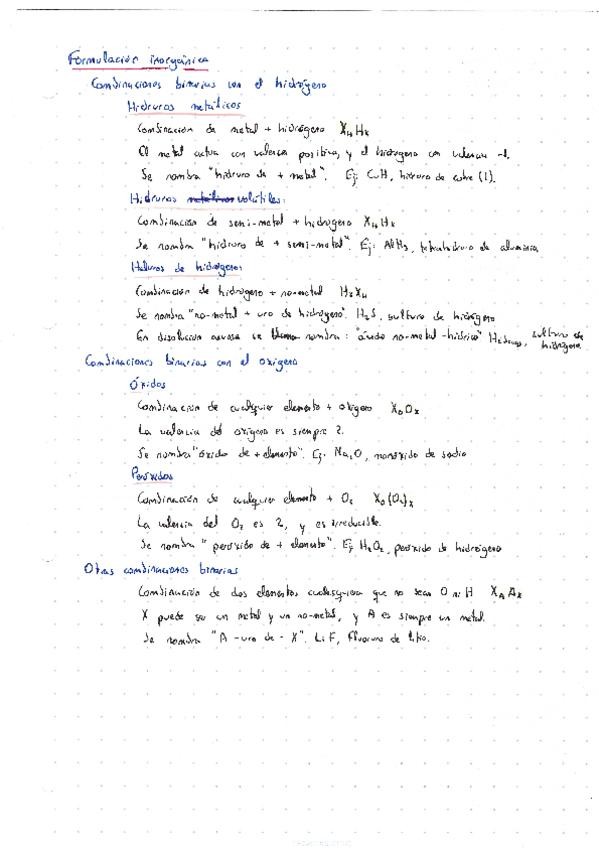 Formulación inorgánica
Combinaciones binarias con el hidrógeno
Hidruros metálicos
Combinación de metal + hidrógeno X_H H_X
El metal actúa con valencia positiva, y el hidrógeno con valencia -1.
Se nombra "hidruro de + metal". Ej: CuH, hidruro de cobre (I).
Hidruros metálicos volátiles:
Combinación de semi-metal + hidrógeno X_H H_X
Se nombra "hidruro de + semi-metal". Ej: AlH3, hidruro de aluminio
Haluros de hidrógeno:
Combinación de hidrógeno + no-metal H_X X_H
Se nombra "no-metal + uro de hidrógeno". H2S, sulfuro de hidrógeno
En disolución acuosa se nombra: "ácido no-metal-hídrico" sulfuro de
hidrógeno
Combinaciones binarias con el oxígeno
Óxidos
Combinación de cualquier elemento + oxígeno X_O O_X
La valencia del oxígeno es siempre 2.
Se nombra "óxido de + elemento". Ej: Na2O, monóxido de sodio
Peróxidos
Combinación de cualquier elemento + O2 X_O (O2)_X
La valencia del O2 es 2, y es irreducible.
Se nombra "peróxido de + elemento". Ej H2O2, peróxido de hidrógeno
Otras combinaciones binarias
Combinación de dos elementos cualesquiera que no sean O ni H X_A A_X
X puede ser un metal y un no-metal, y A es siempre un metal.
Se nombra "A -uro de - X". LiF, fluoruro de litio.